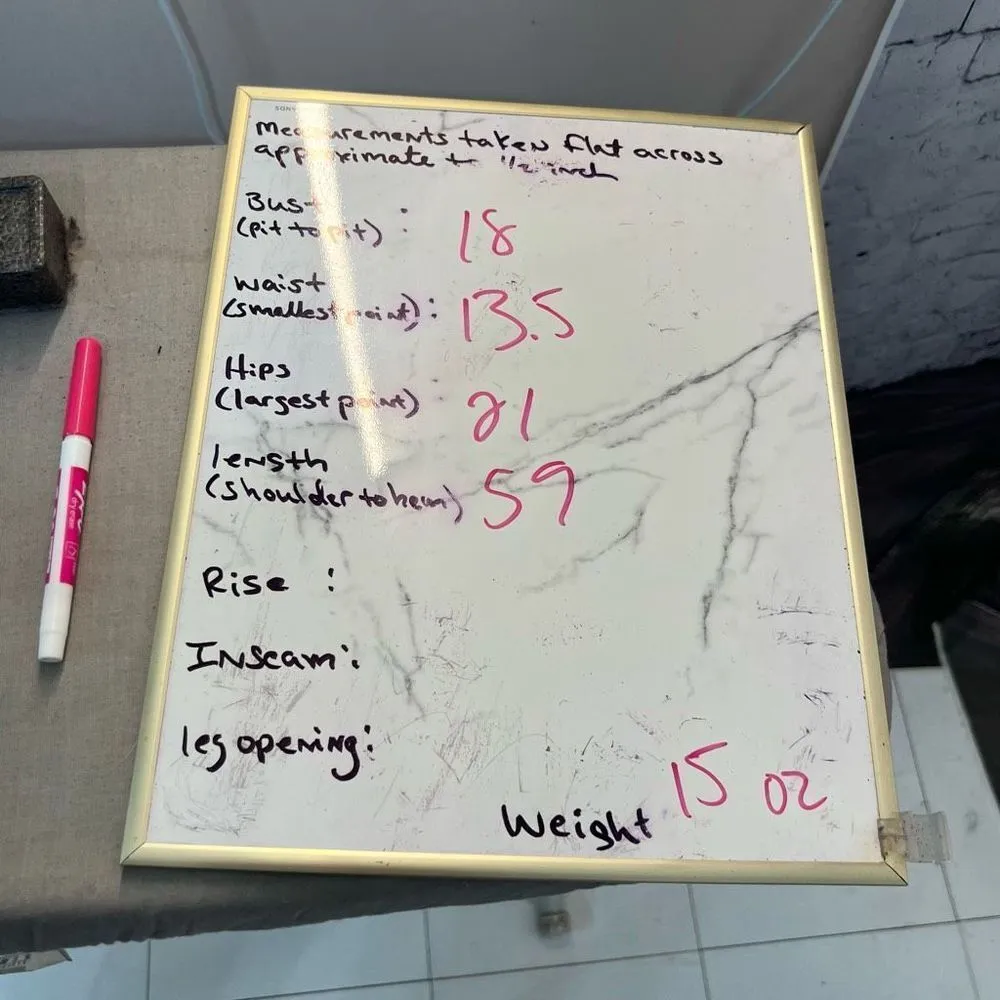 SONY
Measurements taken flat across
approximate + 1/2 inch
Bust
(pit to pit) : 18
waist
(smallest point) : 13.5
Hips
(largest point) 21
length
(shoulder to hem) 59
Rise :
Inseam :
leg opening :
Weight 15 oz